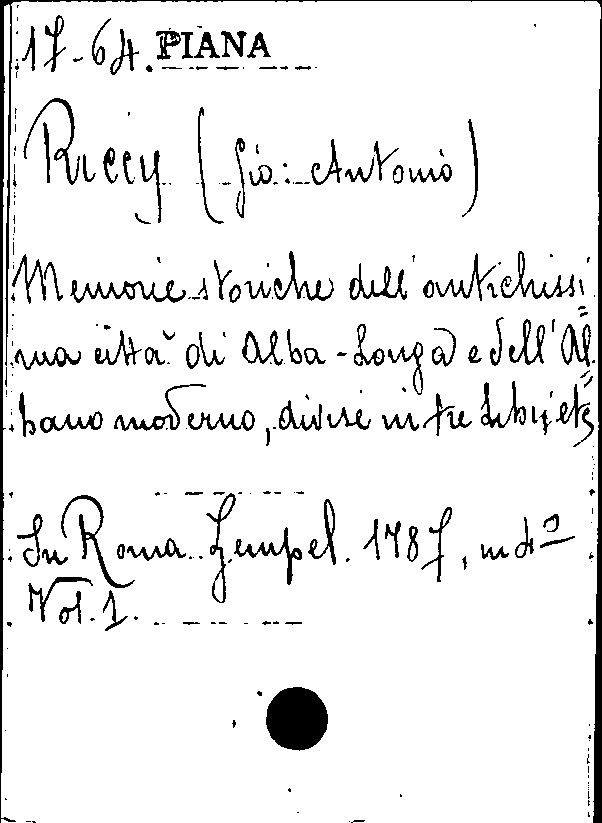 17-64. PIANA
Riccy (Gio: Antonio)
Memorie storiche dell'antichissi=
ma città di Alba-Longa e dell'Al=
bano moderno, divise in tre Libri, etc
In Roma. Zempel. 1787, in 4º
Vol. 1.